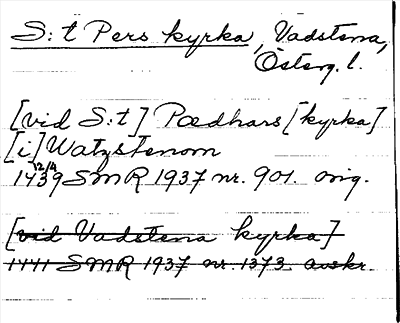 S:t Pers kyrka, Vadstena,
Österg. l.
[vid S:t] Pædhars [kyrka]
[i] Watzstenom
12/4
1439 SMR 1937 nr. 901. orig.
[vid Vadstena kyrka]
1441 SMR 1937 nr. 1373 avskr.